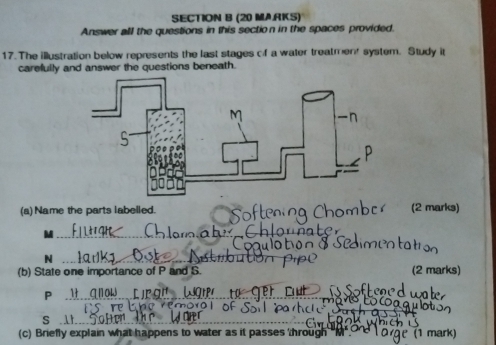 SECTION B (20 MARKS)
Answer all the questions in this section in the spaces provided.
17. The illustration below represents the last stages of a water treatment system. Study it
carefully and answer the questions beneath.
S
M
n
P
(a) Name the parts labelled. (2 marks)
Softening Chamber
M Filtrate Chlorinator Chlorinater
Cogulation & Sedimentation
N Tanks Distribution pipe
(b) State one importance of P and S. (2 marks)
P It allow clean water to get out is Softened water
is removal of Soil particle
S It Soften the Water tank which is
(c) Briefly explain what happens to water as it passes through "M" and large (1 mark)